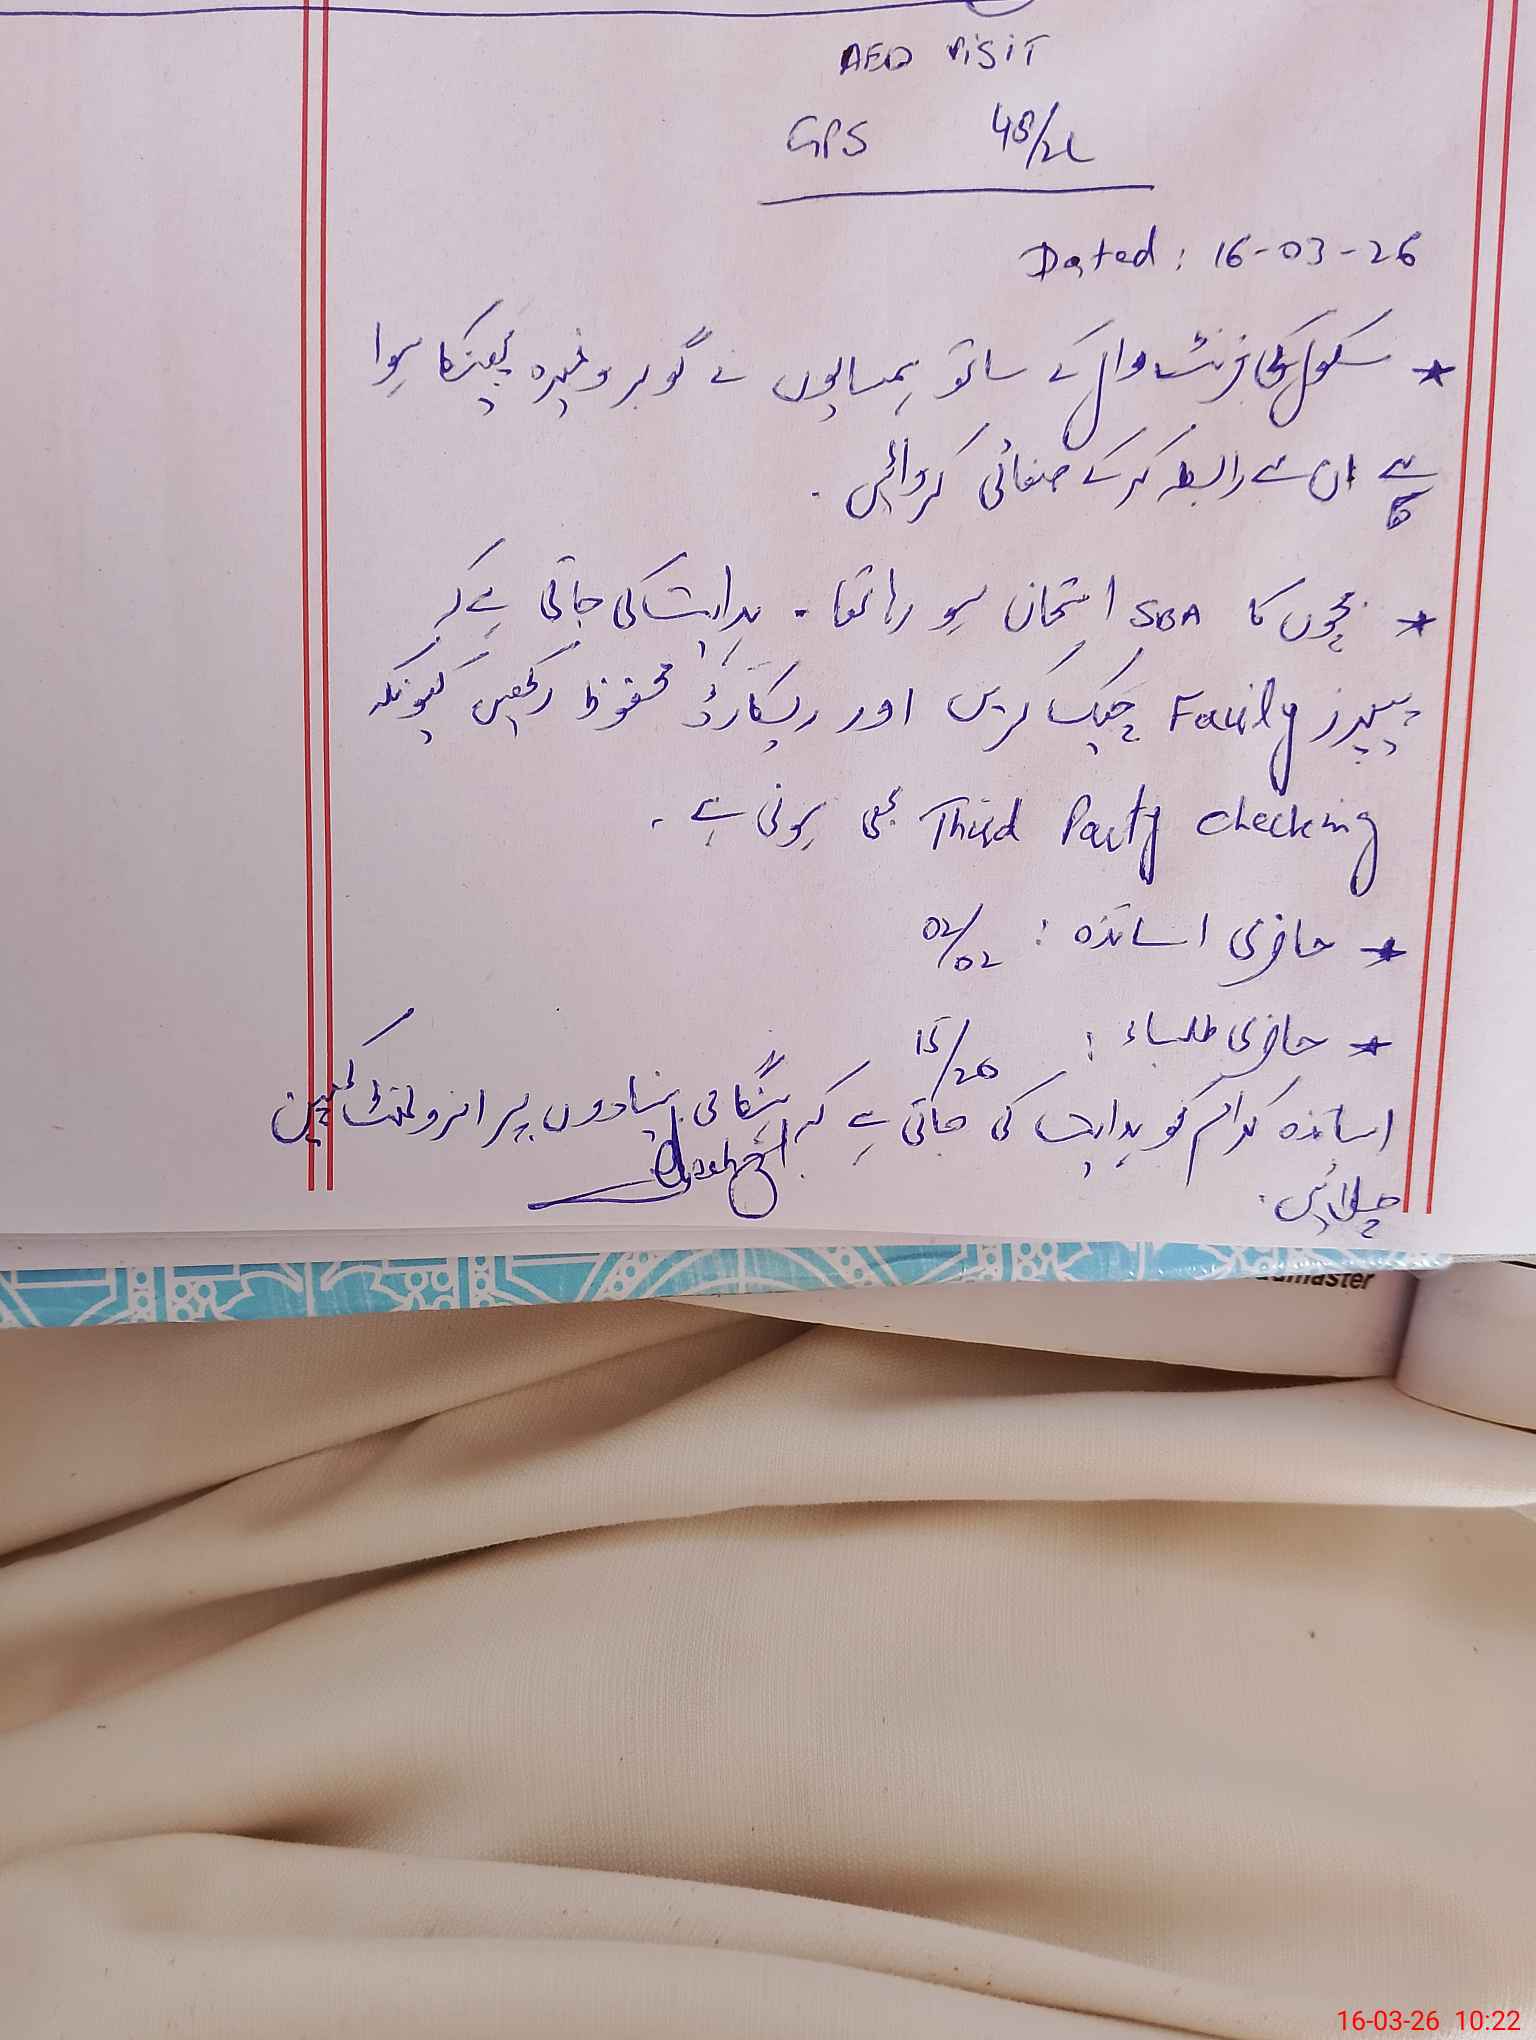 AEO Visit
GPS 48/2L
Dated: 16-03-26
★ سکول کی فرنٹ وال کے ساتھ ہمسایوں نے گوبر وغیرہ پھینکا ہوا
ہے ان سے رابطہ کرکے صفائی کروائیں۔
★ بچوں کا SBA امتحان ہو رہا تھا۔ ہدایت کی جاتی ہے کہ
پیپرز Fairly چیک کریں اور ریکارڈ محفوظ رکھیں کیونکہ
Third Party checking بھی ہونی ہے۔
★ حاضری اساتذہ: 02/02
★ حاضری طلباء: 15/20
اساتذہ کرام کو ہدایت کی جاتی ہے کہ ہنگامی بنیادوں پر انرولمنٹ کمپین
چلائیں۔
admaster
16-03-26 10:22